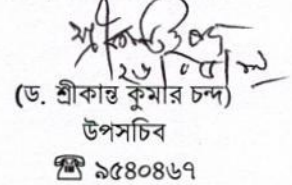 ২৬/০৫/
(ড. শ্রীকান্ত কুমার চন্দ)
উপসচিব
☎ ৯৫৪০৪৬৭